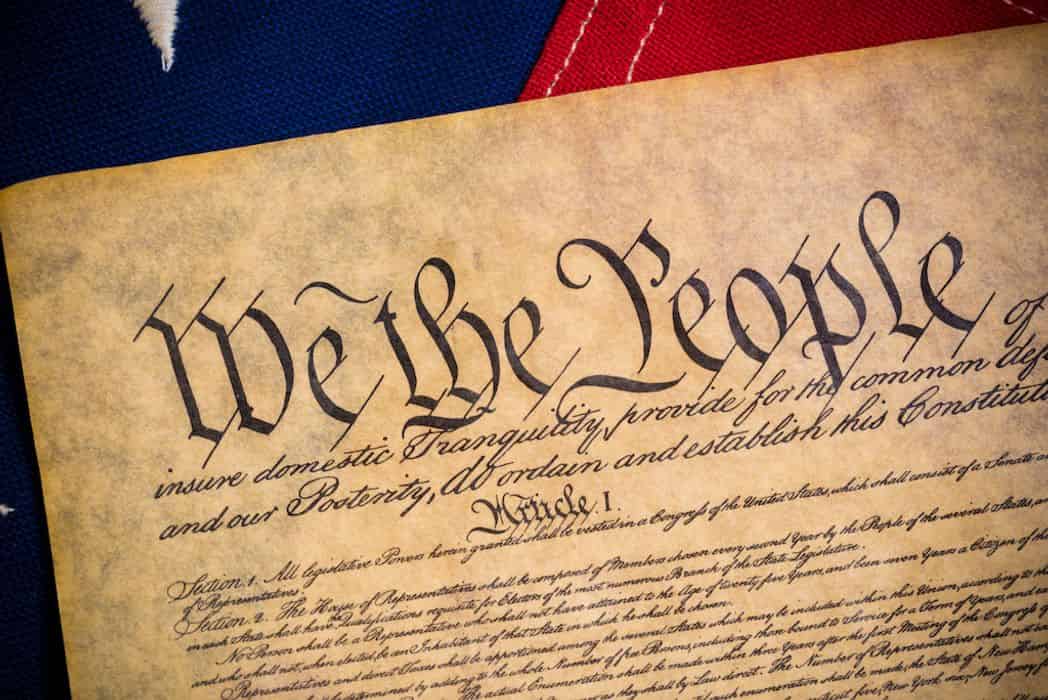 We the People of
insure domestic Tranquility, provide for the common def
and our Posterity, do ordain and establish this Constituti
Article. I.
Section. 1. All legislative Powers herein granted shall be vested in a Congress of the United States, which shall consist of a Senate
of Representatives.
Section. 2. The House of Representatives shall be composed of Members chosen every second Year by the People of the several States,
in each State shall have the Qualifications requisite for Electors of the most numerous Branch of the State Legislature.
No Person shall be a Representative who shall not have attained to the Age of twenty five Years, and been seven Years a Citizen of
and who shall not, when elected, be an Inhabitant of that State in which he shall be chosen.
Representatives and direct Taxes shall be apportioned among the several States which may be included within this Union, according to
determined by adding to the whole Number of free Persons, including those bound to Service for a Term of Years, and
The actual Enumeration shall be made within three Years after the first Meeting of the Congress of
as they shall by Law direct. The Number of Representatives shall not
such enumeration shall be made, the State of New Ham
New York six, New Jersey